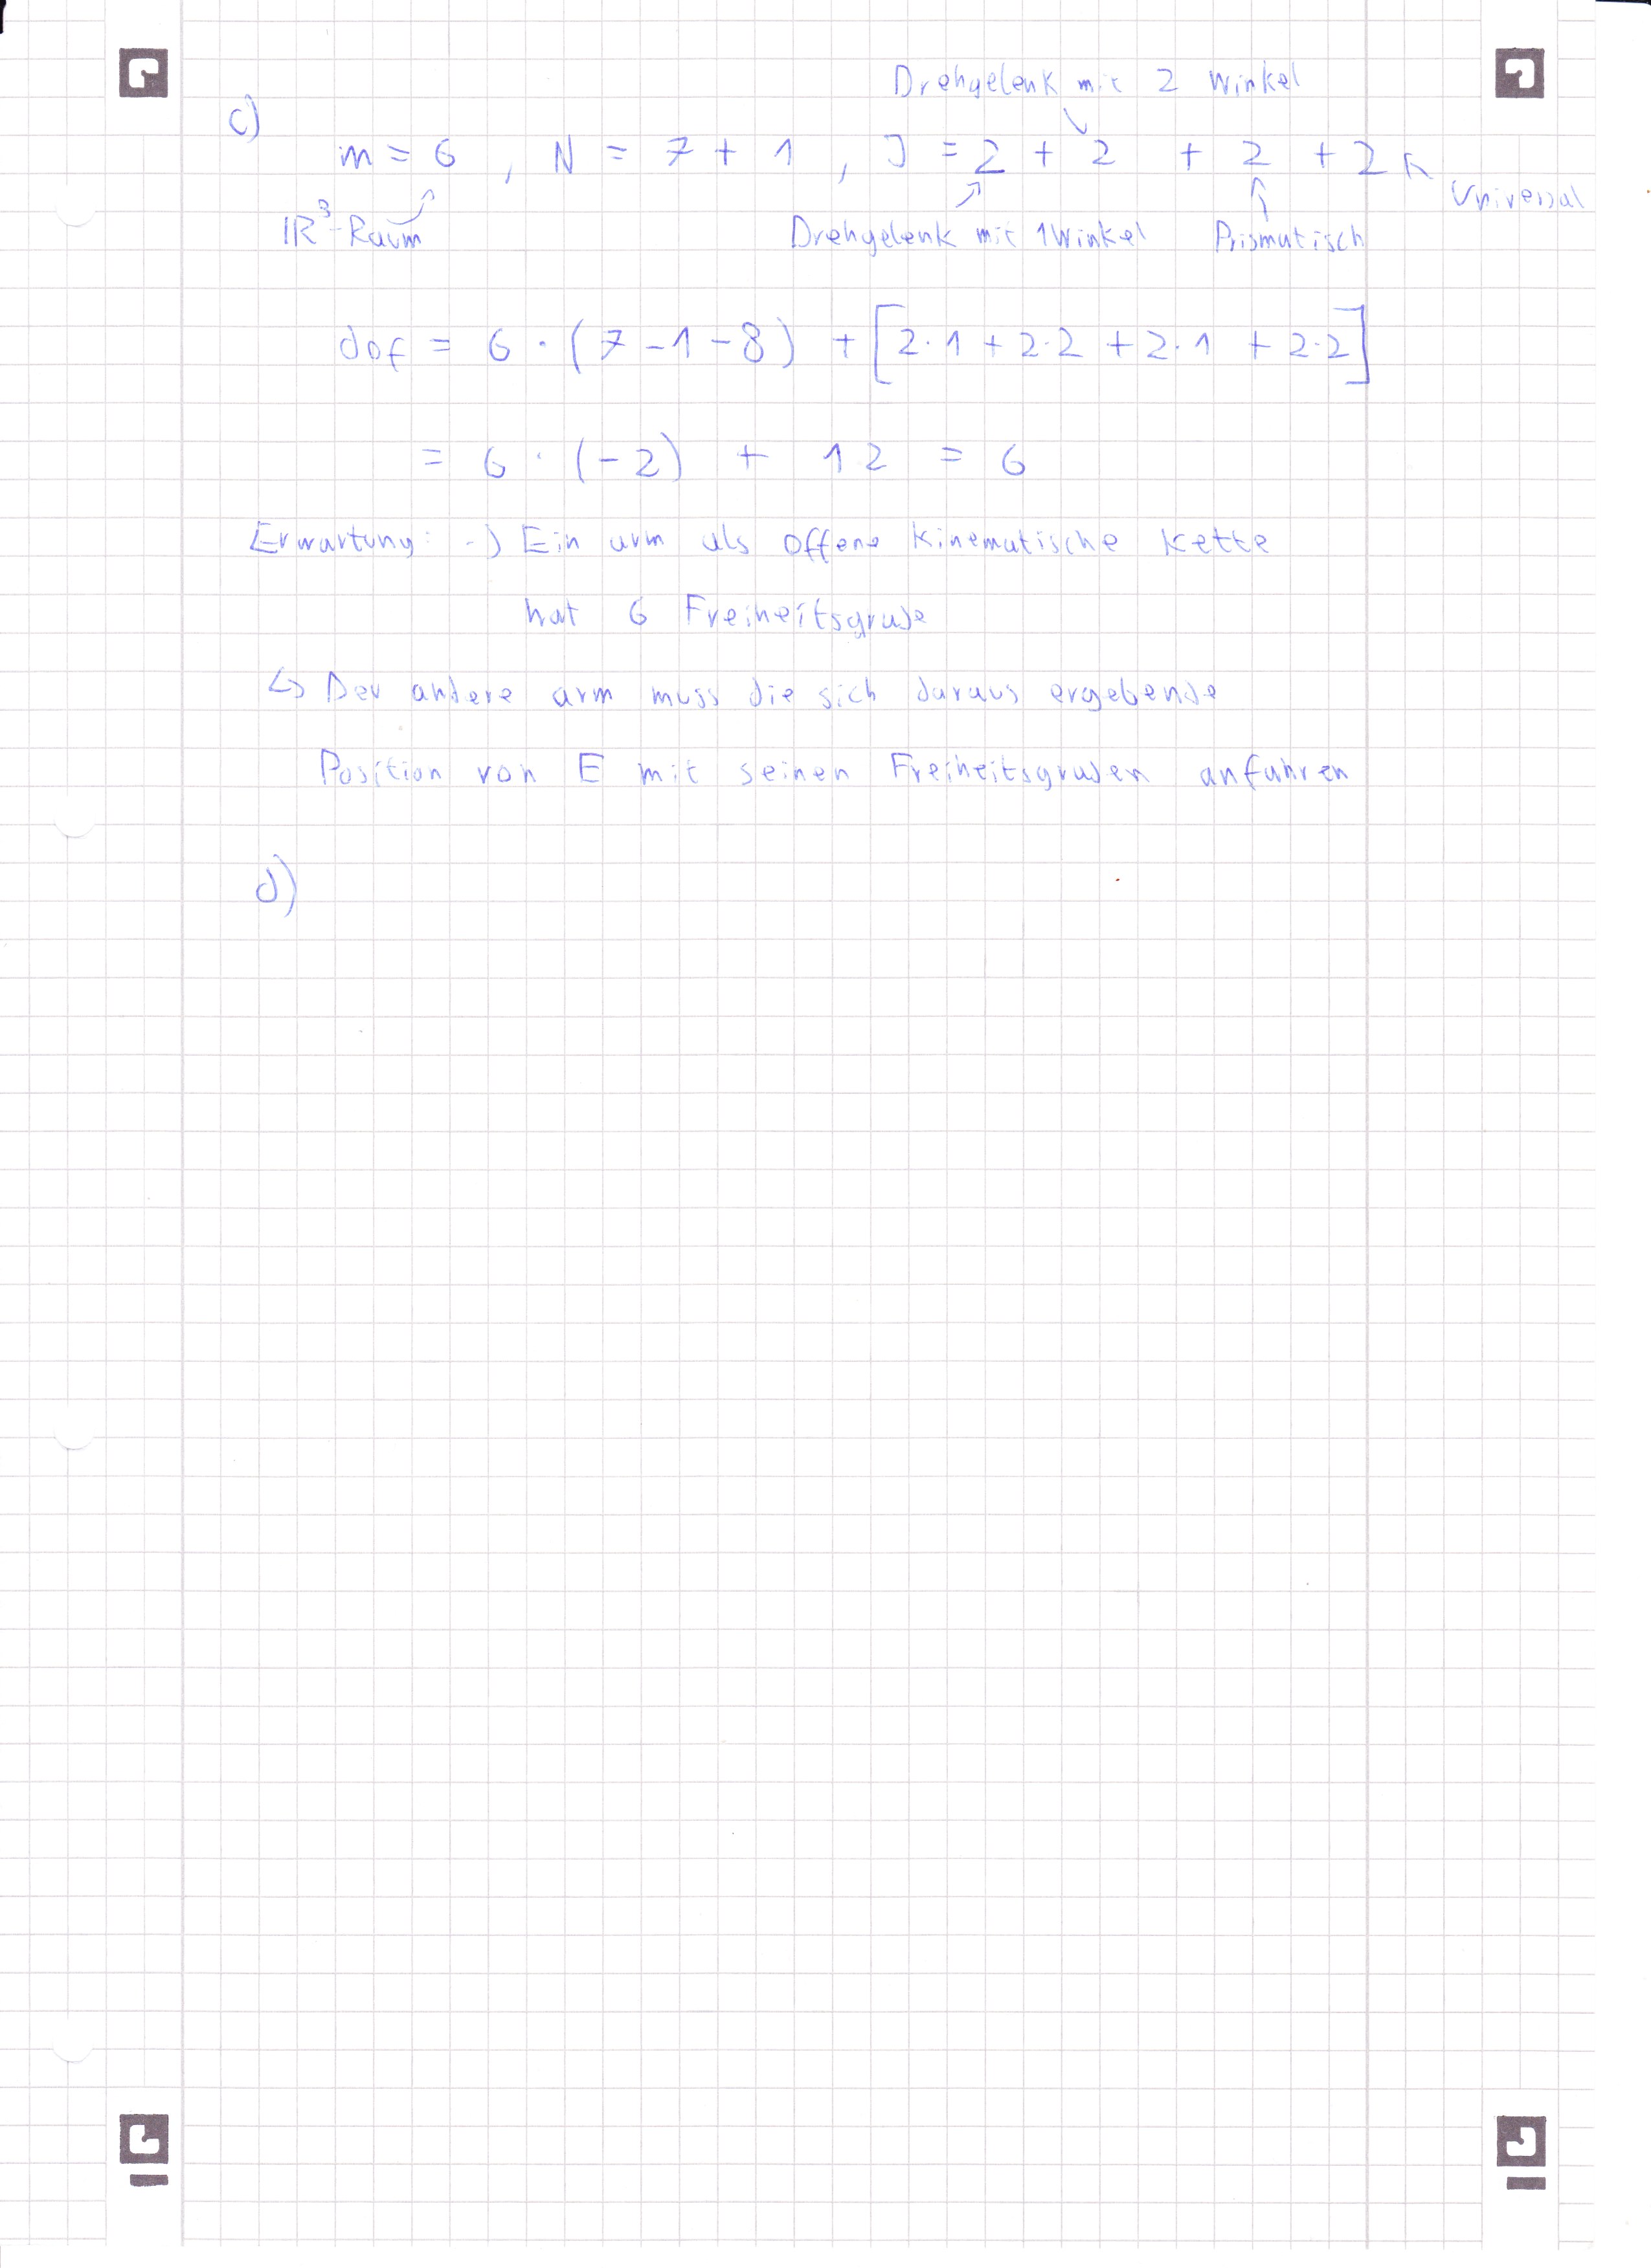 Drehgelenk mit 2 Winkel
c)
m = 6 , N = 7 + 1 , J = 2 + 2 + 2 + 2
Universal
IR³-Raum Drehgelenk mit 1 Winkel Prismatisch
dof = 6 · (7 - 1 - 8) + [2·1 + 2·2 + 2·1 + 2·2]
= 6 · (-2) + 12 = 6
Erwartung: -) Ein arm als offene kinematische kette
hat 6 Freiheitsgrade
↳ Der andere arm muss die sich daraus ergebende
Position von E mit seinen Freiheitsgraden anfahren
d)